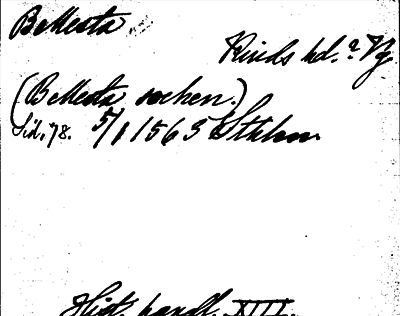 Bellesta
Kinds hd.? Vg.
(Bellesta sochen.)
Sid. 78. 5/1 1563 Sthlm
Hist. handl. XIII.